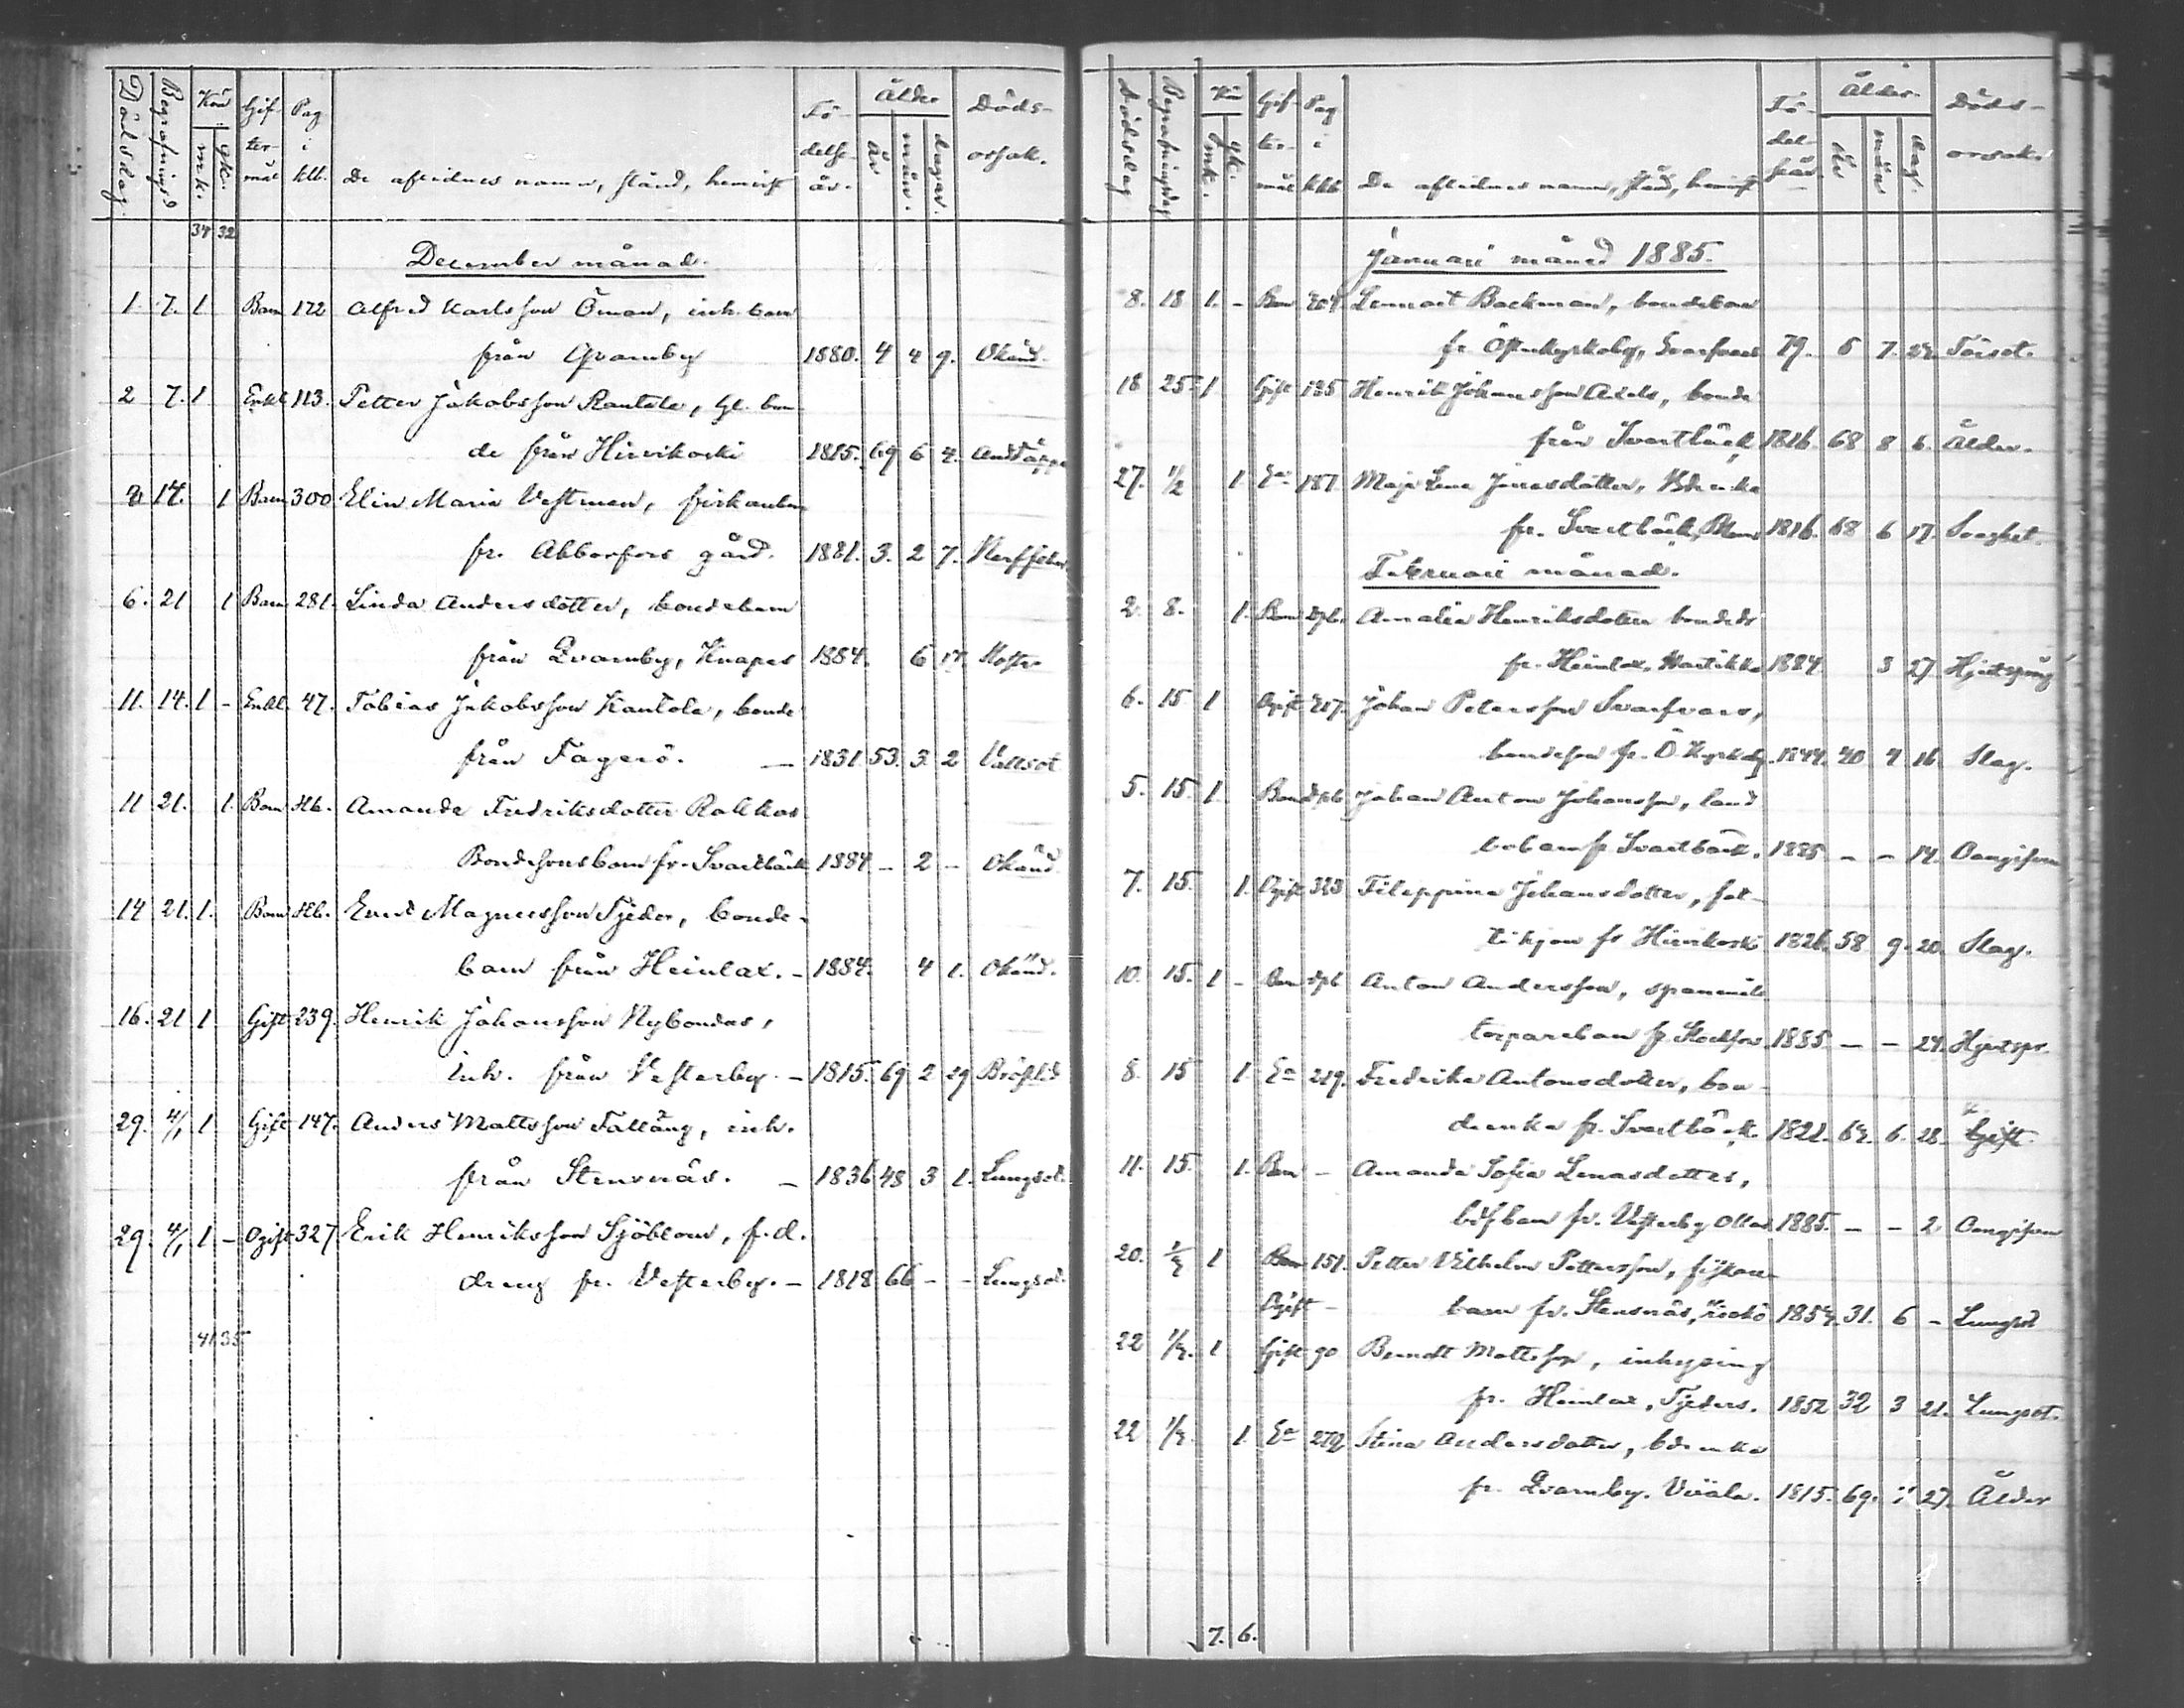 Dödsdag. Begrafningsd Kön mk. qk. Gif-ter-mål Pag i klb. De aflidnes namn, stånd, hemvist Fö-delse-år. Ålder år mån. dagar. Döds-orsak.
34 32
December månad.
1. 7. 1 Barn 122 Alfred Karlsson Öman, inh. barn
från Qvarnby 1880. 4 4 9. Okänd.
2 7. 1 Enkl. 113. Petter Jakobsson Rantala, gl. bon
de från Hirvikoski 1815. 69 6 4. Andtäppa
2 14. 1 Barn 300 Elin Maria Vestman,
fr. Abborfors gård. 1881. 3. 2 7. Nerffeber
6. 21 1 Barn 281. Linda Andersdotter, bondebarn
från Qvarnby, Knapas 1884. 6 17.
11. 14. 1 - Enkl. 47. Tobias Jakobsson Kantola, bonde
från Fagerö. — 1831. 53. 3. 2 Vattsot
11 21. 1. Barn Hb. Amanda Fredriksdotter
Bondesonsbarn fr. Svartbäck 1884 - 2 - Okänd.
14 21. 1. Barn Hb. Magnusson Tjeder, bonde-
barn från Heinlax. - 1884. 4 1. Okänd.
16. 21 1 Gift 239. Henrik Johansson Nybondas,
inh. från Vesterby. - 1815. 69 2 29 Bröstlid
29. 4/1 1 Gift 147. Anders Mattsson Tälläng, inh.
från Stensnäs. - 1836 48 3 1. Lungsot.
29. 4/1 1 - Ogift 327 Erik Henriksson Sjöblom, f.d.
dreng fr. Vesterby. - 1818 66 - - Lungsot.
41 35
Dödsdag Begrafningsdag Kön mk. qk. Gif-ter-mål Pag i kkb De aflidnes namn, stånd, hemvist Fö-del-seår. Ålder år mån dag. Döds-orsak.
Januari månad 1885.
8. 18 1. - Barn 204. Lennart Backman, bondebarn
fr. Österkyrkoby, Svarfvars 79. 5 7. 22 Törsot.
18 25 1 Gift 125 Henrik Johansson Axels, bonde
från Svartbäck 1816. 68 8 6. Ålder.
27. 1/2 1. Ea 187. Maja Lena Jonasdotter,
fr. Svartbäck, 1816. 68 6 17. Svaghet.
Februari månad.
2. 8. 1. Barn Dpb. Amalia Henriksdotter bondedr
fr. Heinlax, Martikka 1884. 3 27 Hjertspång
6. 15 1 Ogift 207. Johan Petersson Svarfvars,
bondeson fr. Ö. Kyrkoby. 1844. 40 4 16. Slag.
5. 15. 1. Barn dpb Johan Anton Johansson, land
bobarn fr Svartbäck. 1885 - - 14. Oangifven
7. 15. 1. Ogift 323 Filippina Johansdotter, fat-
tighjon fr Hirvikoski 1826. 58 9. 20. Slag.
10. 15. 1 - Barn dpb Anton Andersson,
torparebarn fr 1885. - - 24. Hjertspr.
8. 15 1. Ea 219. Fredrika Antonsdotter, bon-
deenka fr. Svartbäck. 1822. 62. 6. 28.
11. 15. 1. Barn - Amanda Sofia Lenasdotter,
fr. Vesterby Ollas 1885. - - 2 Oangifven
20. 1 Barn 151. Petter Vilhelm Pettersson, fiskare-
Ogift - barn fr. Stensnäs, 31. 6 - Lungsot
22 1 Gift 90 Berndt Mattsson, inhysing
fr. Heinlax, Tjeders. 1852 32 3 21. Lungsot.
22 1. Ea 272 Stina Andersdotter,
fr. Qvarnby. 1815. 69. 27. Ålder
7. 6.